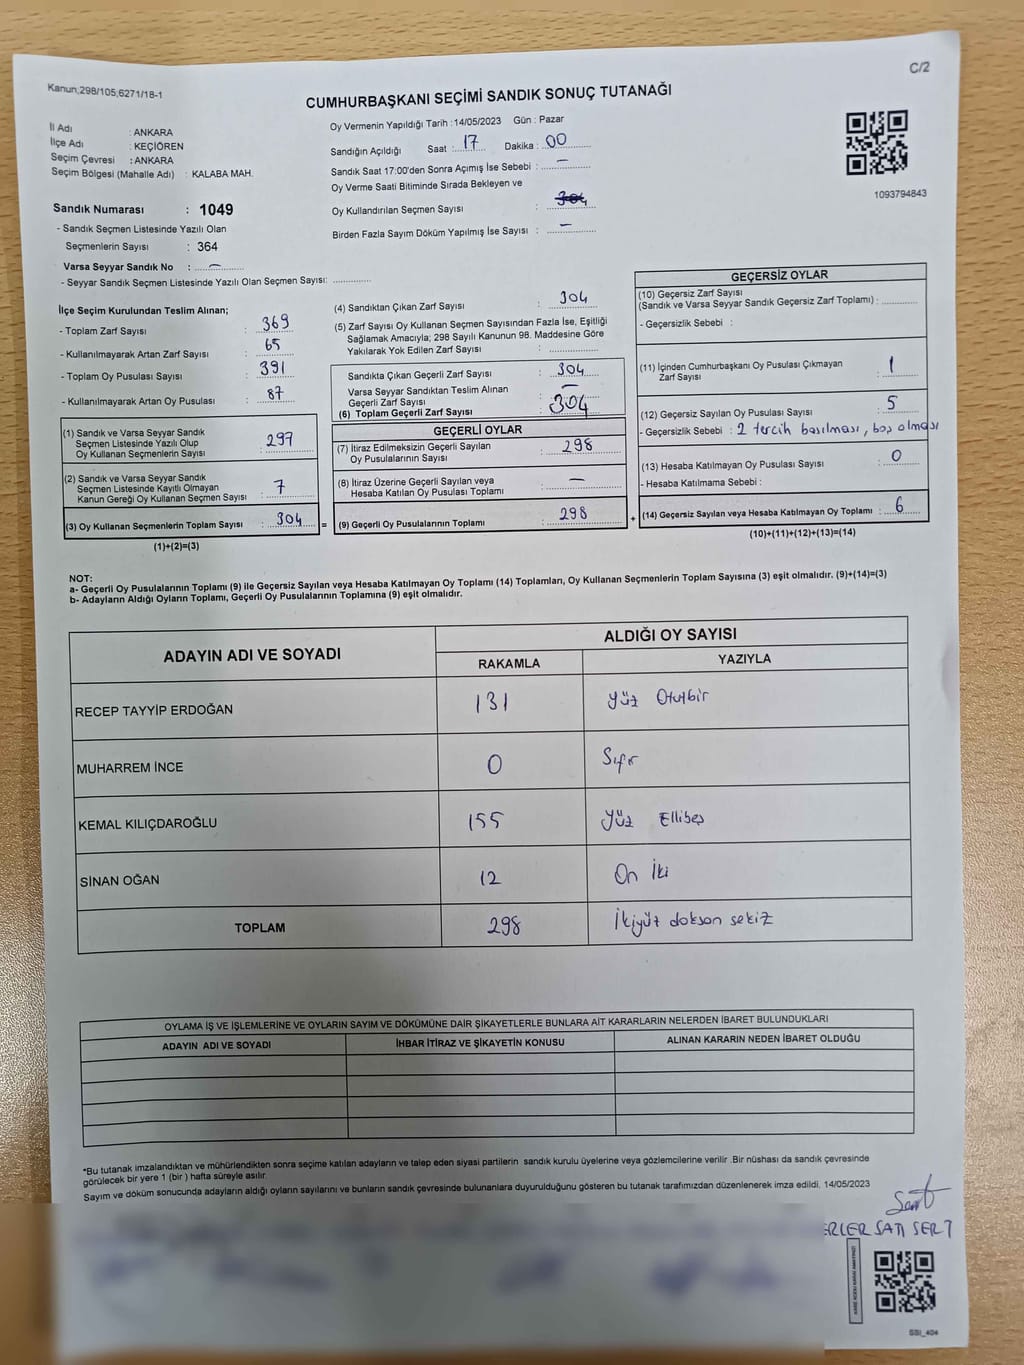 C/2
Kanun;298/105;6271/18-1
CUMHURBAŞKANI SEÇİMİ SANDIK SONUÇ TUTANAĞI
İl Adı : ANKARA
İlçe Adı : KEÇİÖREN
Seçim Çevresi : ANKARA
Seçim Bölgesi (Mahalle Adı) : KALABA MAH.
Oy Vermenin Yapıldığı Tarih :14/05/2023 Gün : Pazar
Sandığın Açıldığı Saat : 17 Dakika : 00
Sandık Saat 17:00'den Sonra Açımış İse Sebebi : —
Oy Verme Saati Bitiminde Sırada Bekleyen ve
Oy Kullandırılan Seçmen Sayısı :
Birden Fazla Sayım Döküm Yapılmış İse Sayısı : —
1093794843
Sandık Numarası : 1049
- Sandık Seçmen Listesinde Yazılı Olan
Seçmenlerin Sayısı : 364
Varsa Seyyar Sandık No : —
- Seyyar Sandık Seçmen Listesinde Yazılı Olan Seçmen Sayısı:
İlçe Seçim Kurulundan Teslim Alınan;
- Toplam Zarf Sayısı : 369
- Kullanılmayarak Artan Zarf Sayısı : 65
- Toplam Oy Pusulası Sayısı : 391
- Kullanılmayarak Artan Oy Pusulası : 87
(1) Sandık ve Varsa Seyyar Sandık
Seçmen Listesinde Yazılı Olup
Oy Kullanan Seçmenlerin Sayısı : 297
(2) Sandık ve Varsa Seyyar Sandık
Seçmen Listesinde Kayıtlı Olmayan
Kanun Gereği Oy Kullanan Seçmen Sayısı : 7
(3) Oy Kullanan Seçmenlerin Toplam Sayısı : 304 =
(1)+(2)=(3)
(4) Sandıktan Çıkan Zarf Sayısı : 304
(5) Zarf Sayısı Oy Kullanan Seçmen Sayısından Fazla İse, Eşitliği
Sağlamak Amacıyla; 298 Sayılı Kanunun 98. Maddesine Göre
Yakılarak Yok Edilen Zarf Sayısı :
Sandıkta Çıkan Geçerli Zarf Sayısı : 304
Varsa Seyyar Sandıktan Teslim Alınan
Geçerli Zarf Sayısı : —
(6) Toplam Geçerli Zarf Sayısı : 304
GEÇERLİ OYLAR
(7) İtiraz Edilmeksizin Geçerli Sayılan
Oy Pusulalarının Sayısı : 298
(8) İtiraz Üzerine Geçerli Sayılan veya
Hesaba Katılan Oy Pusulası Toplamı : —
(9) Geçerli Oy Pusulalarının Toplamı : 298 +
GEÇERSİZ OYLAR
(10) Geçersiz Zarf Sayısı
(Sandık ve Varsa Seyyar Sandık Geçersiz Zarf Toplamı) :
- Geçersizlik Sebebi :
(11) İçinden Cumhurbaşkanı Oy Pusulası Çıkmayan
Zarf Sayısı : 1
(12) Geçersiz Sayılan Oy Pusulası Sayısı : 5
- Geçersizlik Sebebi : 2 tercih basılması, boş olması
(13) Hesaba Katılmayan Oy Pusulası Sayısı : 0
- Hesaba Katılmama Sebebi :
(14) Geçersiz Sayılan veya Hesaba Katılmayan Oy Toplamı : 6
(10)+(11)+(12)+(13)=(14)
NOT:
a- Geçerli Oy Pusulalarının Toplamı (9) ile Geçersiz Sayılan veya Hesaba Katılmayan Oy Toplamı (14) Toplamları, Oy Kullanan Seçmenlerin Toplam Sayısına (3) eşit olmalıdır. (9)+(14)=(3)
b- Adayların Aldığı Oyların Toplamı, Geçerli Oy Pusulalarının Toplamına (9) eşit olmalıdır.
ADAYIN ADI VE SOYADI
ALDIĞI OY SAYISI
RAKAMLA YAZIYLA
RECEP TAYYİP ERDOĞAN 131 Yüz Otuzbir
MUHARREM İNCE 0 Sıfır
KEMAL KILIÇDAROĞLU 155 Yüz Ellibeş
SİNAN OĞAN 12 On İki
TOPLAM 298 İkiyüz doksan sekiz
OYLAMA İŞ VE İŞLEMLERİNE VE OYLARIN SAYIM VE DÖKÜMÜNE DAİR ŞİKAYETLERLE BUNLARA AİT KARARLARIN NELERDEN İBARET BULUNDUKLARI
ADAYIN ADI VE SOYADI İHBAR İTİRAZ VE ŞİKAYETİN KONUSU ALINAN KARARIN NEDEN İBARET OLDUĞU
*Bu tutanak imzalandıktan ve mühürlendikten sonra seçime katılan adayların ve talep eden siyasi partilerin sandık kurulu üyelerine veya gözlemcilerine verilir .Bir nüshası da sandık çevresinde
görülecek bir yere 1 (bir ) hafta süreyle asılır.
Sayım ve döküm sonucunda adayların aldığı oyların sayılarını ve bunların sandık çevresinde bulunanlara duyurulduğunu gösteren bu tutanak tarafımızdan düzenlenerek imza edildi. 14/05/2023
Sert
ERLER SATI SERT
SSI_404